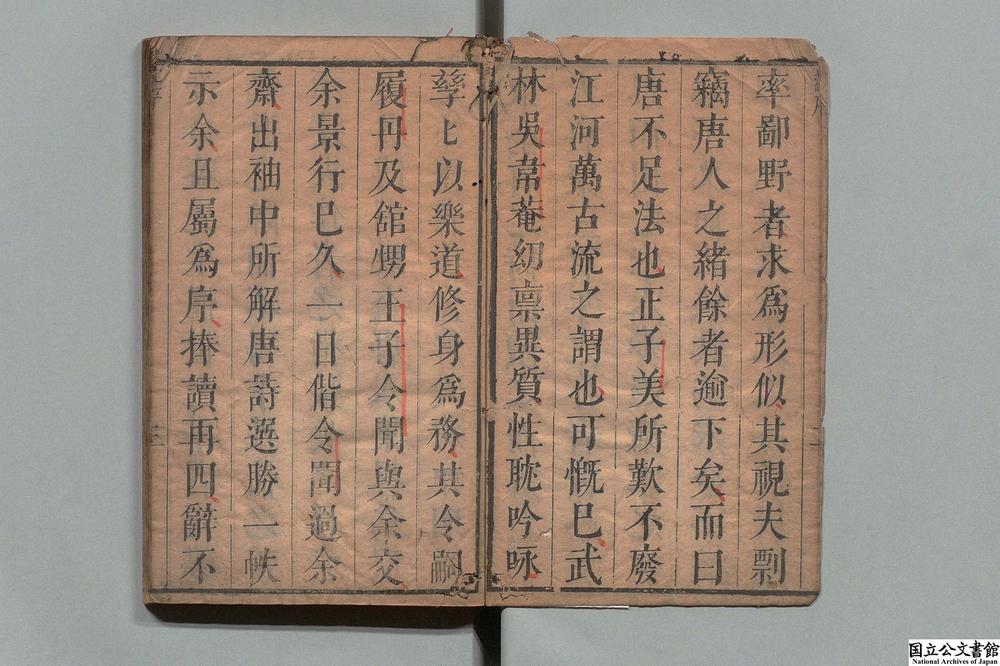 率鄙野者求爲形似其視夫剽
竊唐人之緒餘者逾下矣而曰
唐不足法也正子美所歎不廢
江河萬古流之謂也可慨巳武
林吳韋菴幼禀異質性耽吟咏
孳〻以樂道修身爲務其令嗣
履丹及舘甥王子令聞與余交
余景行巳久一日偕令聞過余
齋出袖中所解唐詩選勝一帙
示余且屬爲序捧讀再四辭不
三
国立公文書館
National Archives of Japan